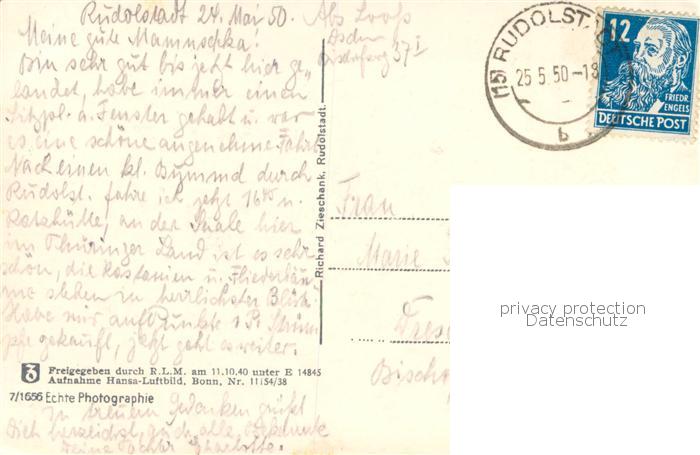 Rudolstadt 24. Mai 50.
Meine gute Mamuschka!
Bin sehr gut bis jetzt hier ge
landet, habe immer einen
Sitzpl. a. Fenster gehabt u. war
es eine schöne angenehme Fahrt
Nach einen kl. Bummel durch
Rudolst. fahre ich jetzt 16 n.
Katzhütte, an der Saale hier
im Thüringer Land ist es sehr
schön, die Kastanien u. Fliederbäu
me stehen in herrlichster Blüte.
Habe mir auf Punkte 1 Pr. Strüm
pfe gekauft, jetzt geht es weiter.
In treuem Gedenken grüßt
Dich herzlichst, auch alle,
Deine Tochter Charlotte.
Abs. Loofs
Bischofsweg 37 I
Richard Zieschank, Rudolstadt.
Freigegeben durch R.L.M. am 11.10.40 unter E 14845
Aufnahme Hansa-Luftbild, Bonn, Nr. 11154/38
7/1656 Echte Photographie
(15) RUDOLST
25.5.50-18
b
12
FRIEDR.
ENGELS
DEUTSCHE POST
Frau
Marie
Dres
Bisch
privacy protection
Datenschutz